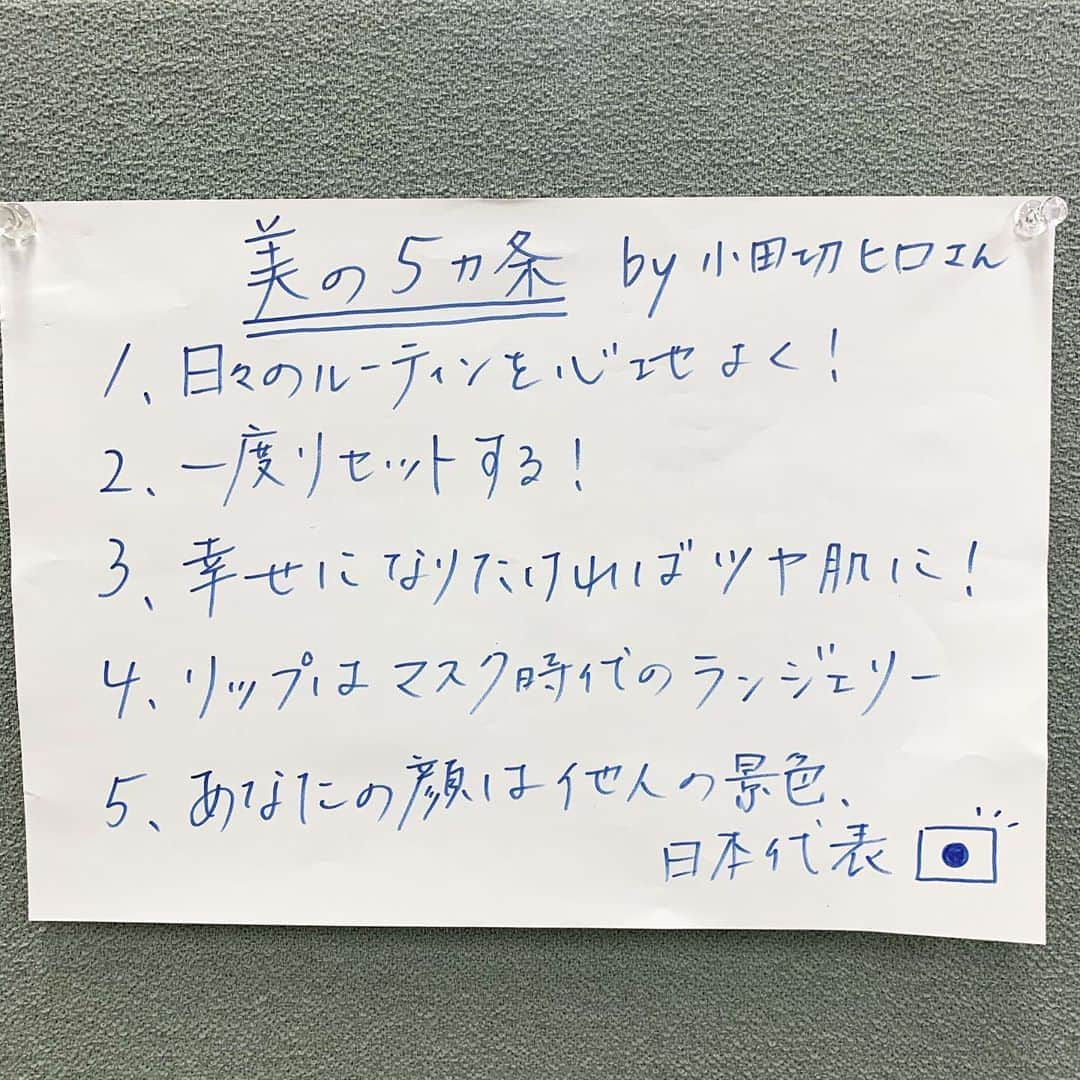 美の5ヵ条 by 小田切ヒロさん
1、日々のルーティンを心地よく!
2、一度リセットする!
3、幸せになりたければツヤ肌に!
4、リップはマスク時代のランジェリー
5、あなたの顔は他人の景色、
日本代表